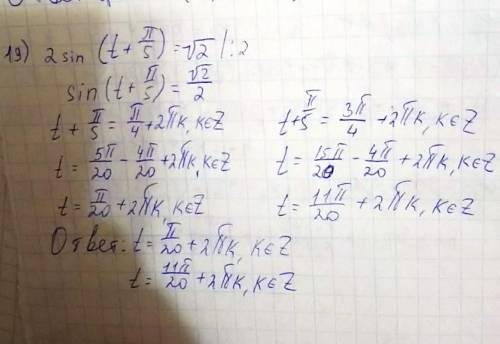 19) 2 sin (t + π/5) = √2 | : 2
sin (t + π/5) = √2/2
t + π/5 = π/4 + 2πk, k∈Z
t = 5π/20 - 4π/20 + 2πk, k∈Z
t = π/20 + 2πk, k∈Z
t + π/5 = 3π/4 + 2πk, k∈Z
t = 15π/20 - 4π/20 + 2πk, k∈Z
t = 11π/20 + 2πk, k∈Z
Ответ: t = π/20 + 2πk, k∈Z
t = 11π/20 + 2πk, k∈Z